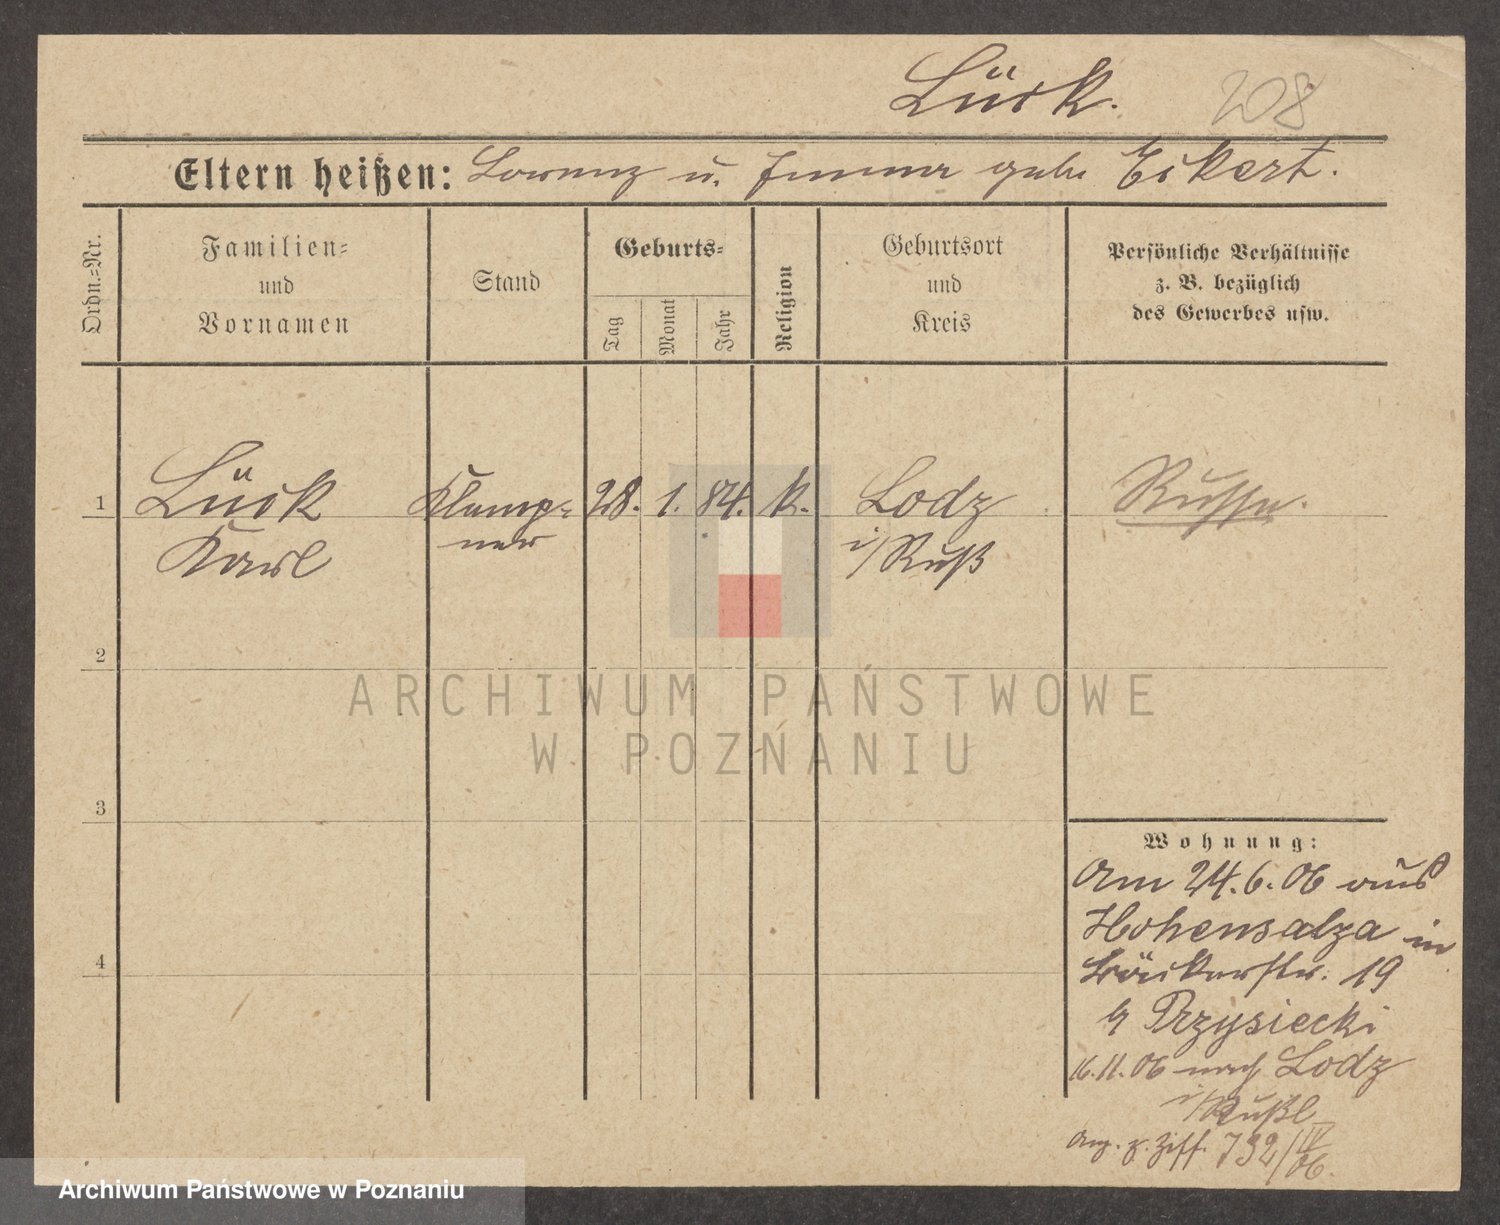 Lück.
208
Eltern heißen: Lorenz u. Emma geb. Eckert.
Ordn.=Nr.
Familien=
und
Vornamen
Stand
Geburts=
Tag
Monat
Jahr
Religion
Geburtsort
und
Kreis
Persönliche Verhältnisse
z. B. bezüglich
des Gewerbes usw.
1 Lück Klemp= 28. 1. 84. k. Lodz Russe.
Karl ner i/Rußl
2
3
4
ARCHIWUM PAŃSTWOWE
W POZNANIU
Wohnung:
Am 24.6.06 aus
Hohensalza in
Bäckerstr. 19
b Przysiecki
16.11.06 nach Lodz
i/Rußl
Ang. z. Ziff. 732/IV
06.
Archiwum Państwowe w Poznaniu